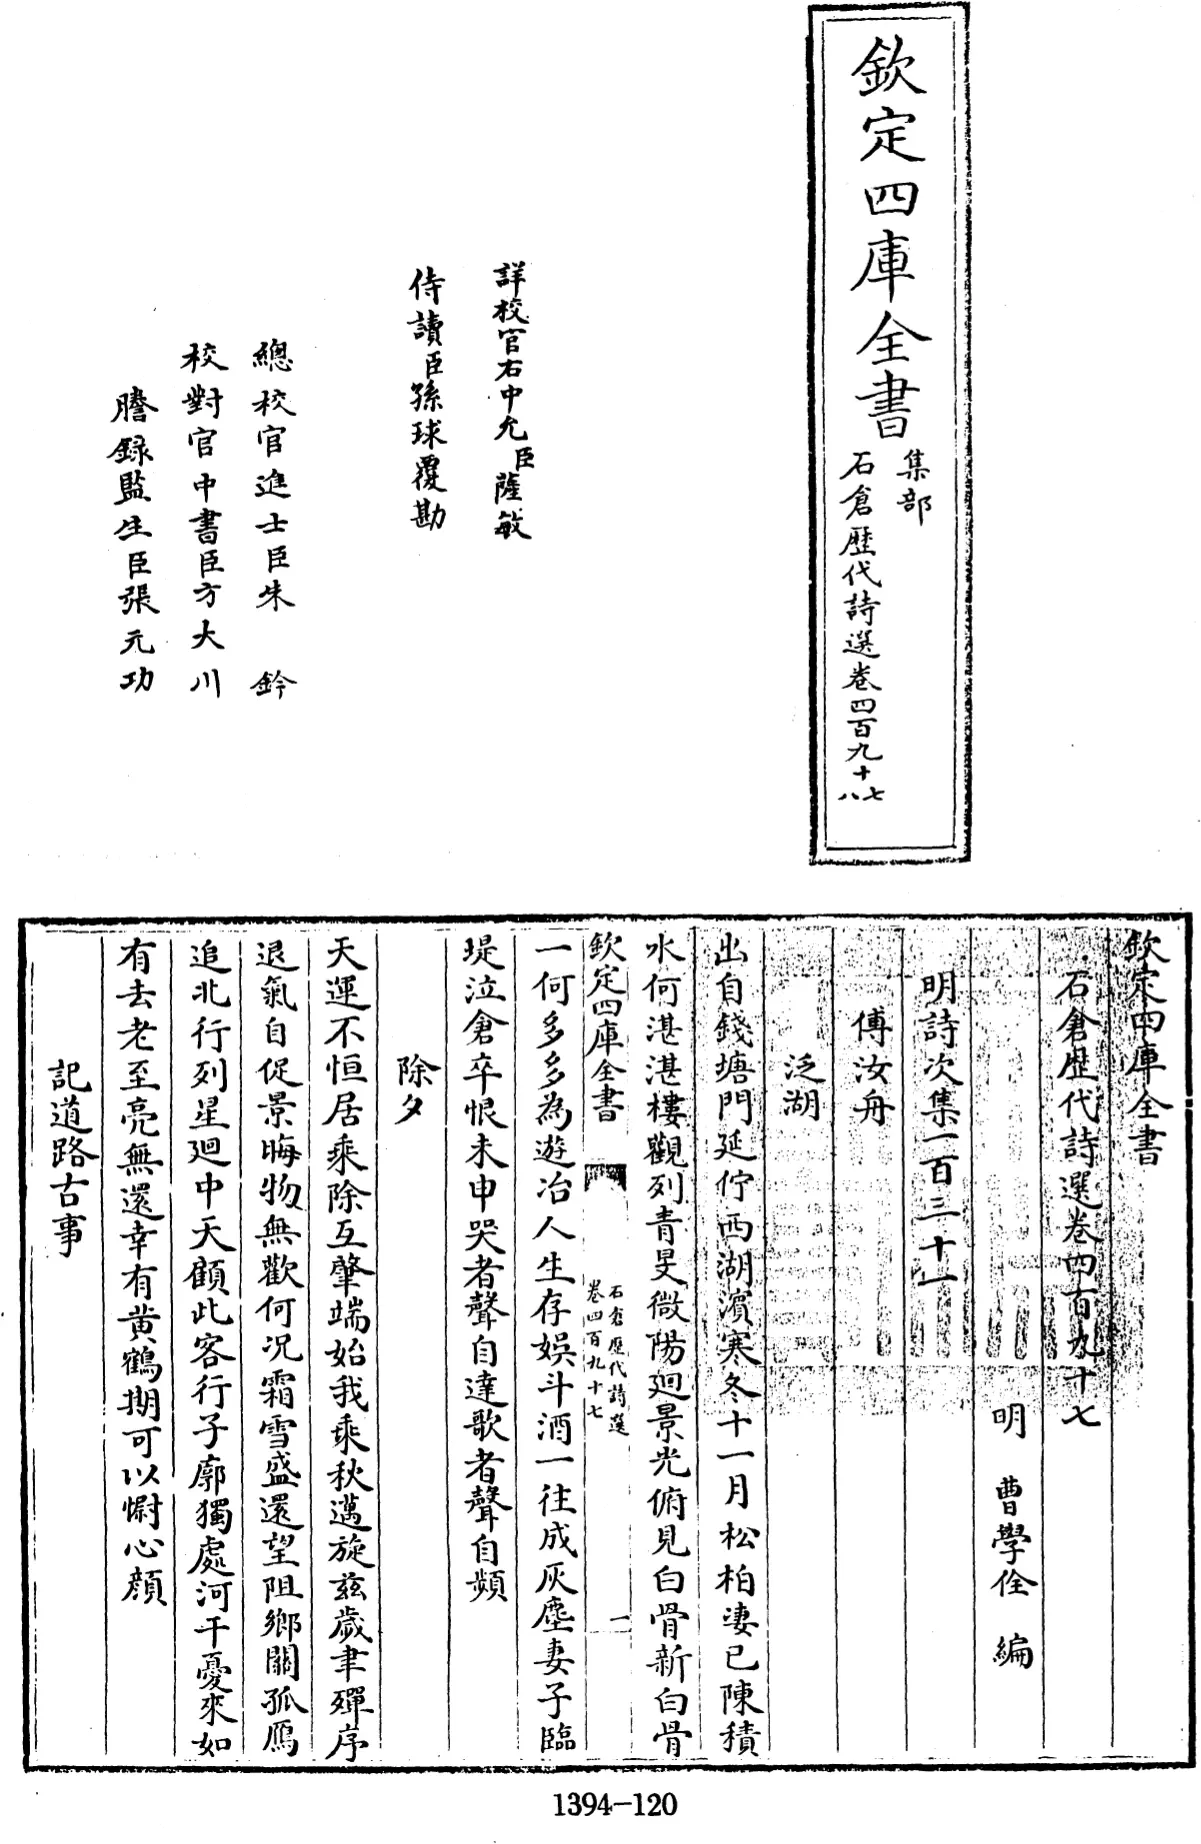 欽定四庫全書
集部
石倉歷代詩選卷四百九十七
八
詳校官右中允臣薩敏
侍讀臣孫球覆勘
總校官進士臣朱鈐
校對官中書臣方大川
謄錄監生臣張元功
欽定四庫全書
石倉歷代詩選卷四百九十七
明 曹學佺 編
明詩次集一百三十一
傅汝舟
泛湖
出自錢塘門延佇西湖濱寒冬十一月松柏淒已陳積
水何湛湛樓觀列青旻微陽廻景光俯見白骨新白骨
欽定四庫全書
石倉歷代詩選
卷四百九十七
一
一何多多為遊冶人生存娛斗酒一往成灰塵妻子臨
堤泣倉卒恨未申哭者聲自達歌者聲自頻
除夕
天運不恒居乘除互肇端始我乘秋邁旋兹歲聿殫序
退氣自促景晦物無歡何況霜雪盛還望阻鄉關孤鴈
追北行列星廻中天顧此客行子廓獨處河干憂來如
有去老至亮無還幸有黄鶴期可以慰心顔
記道路古事
1394-120